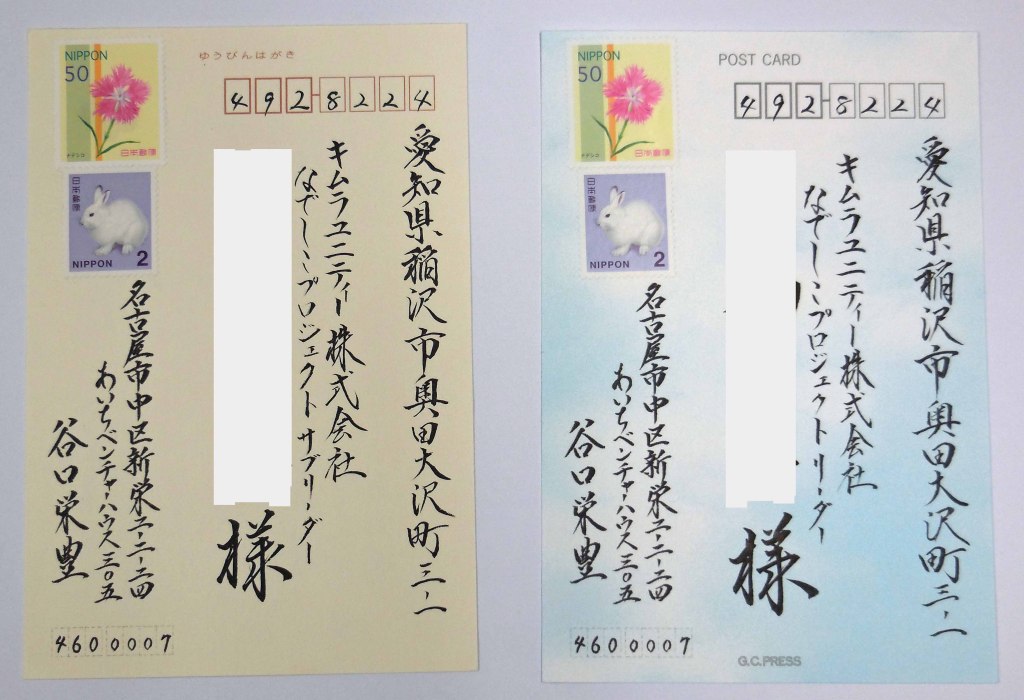 NIPPON
50
ナデシコ
日本郵便
日本郵便
NIPPON 2
ゆうびんはがき
492-8224
愛知県稲沢市奥田大沢町三-一
キムラユニティー株式会社
なでしこプロジェクトサブリーダー
様
名古屋市中区新栄二-二-二四
あいちベンチャーハウス三〇五
谷口栄豊
4600007
NIPPON
50
ナデシコ
日本郵便
日本郵便
NIPPON 2
POST CARD
492-8224
愛知県稲沢市奥田大沢町三-一
キムラユニティー株式会社
なでしこプロジェクトリーダー
様
名古屋市中区新栄二-二-二四
あいちベンチャーハウス三〇五
谷口栄豊
4600007
G.C.PRESS